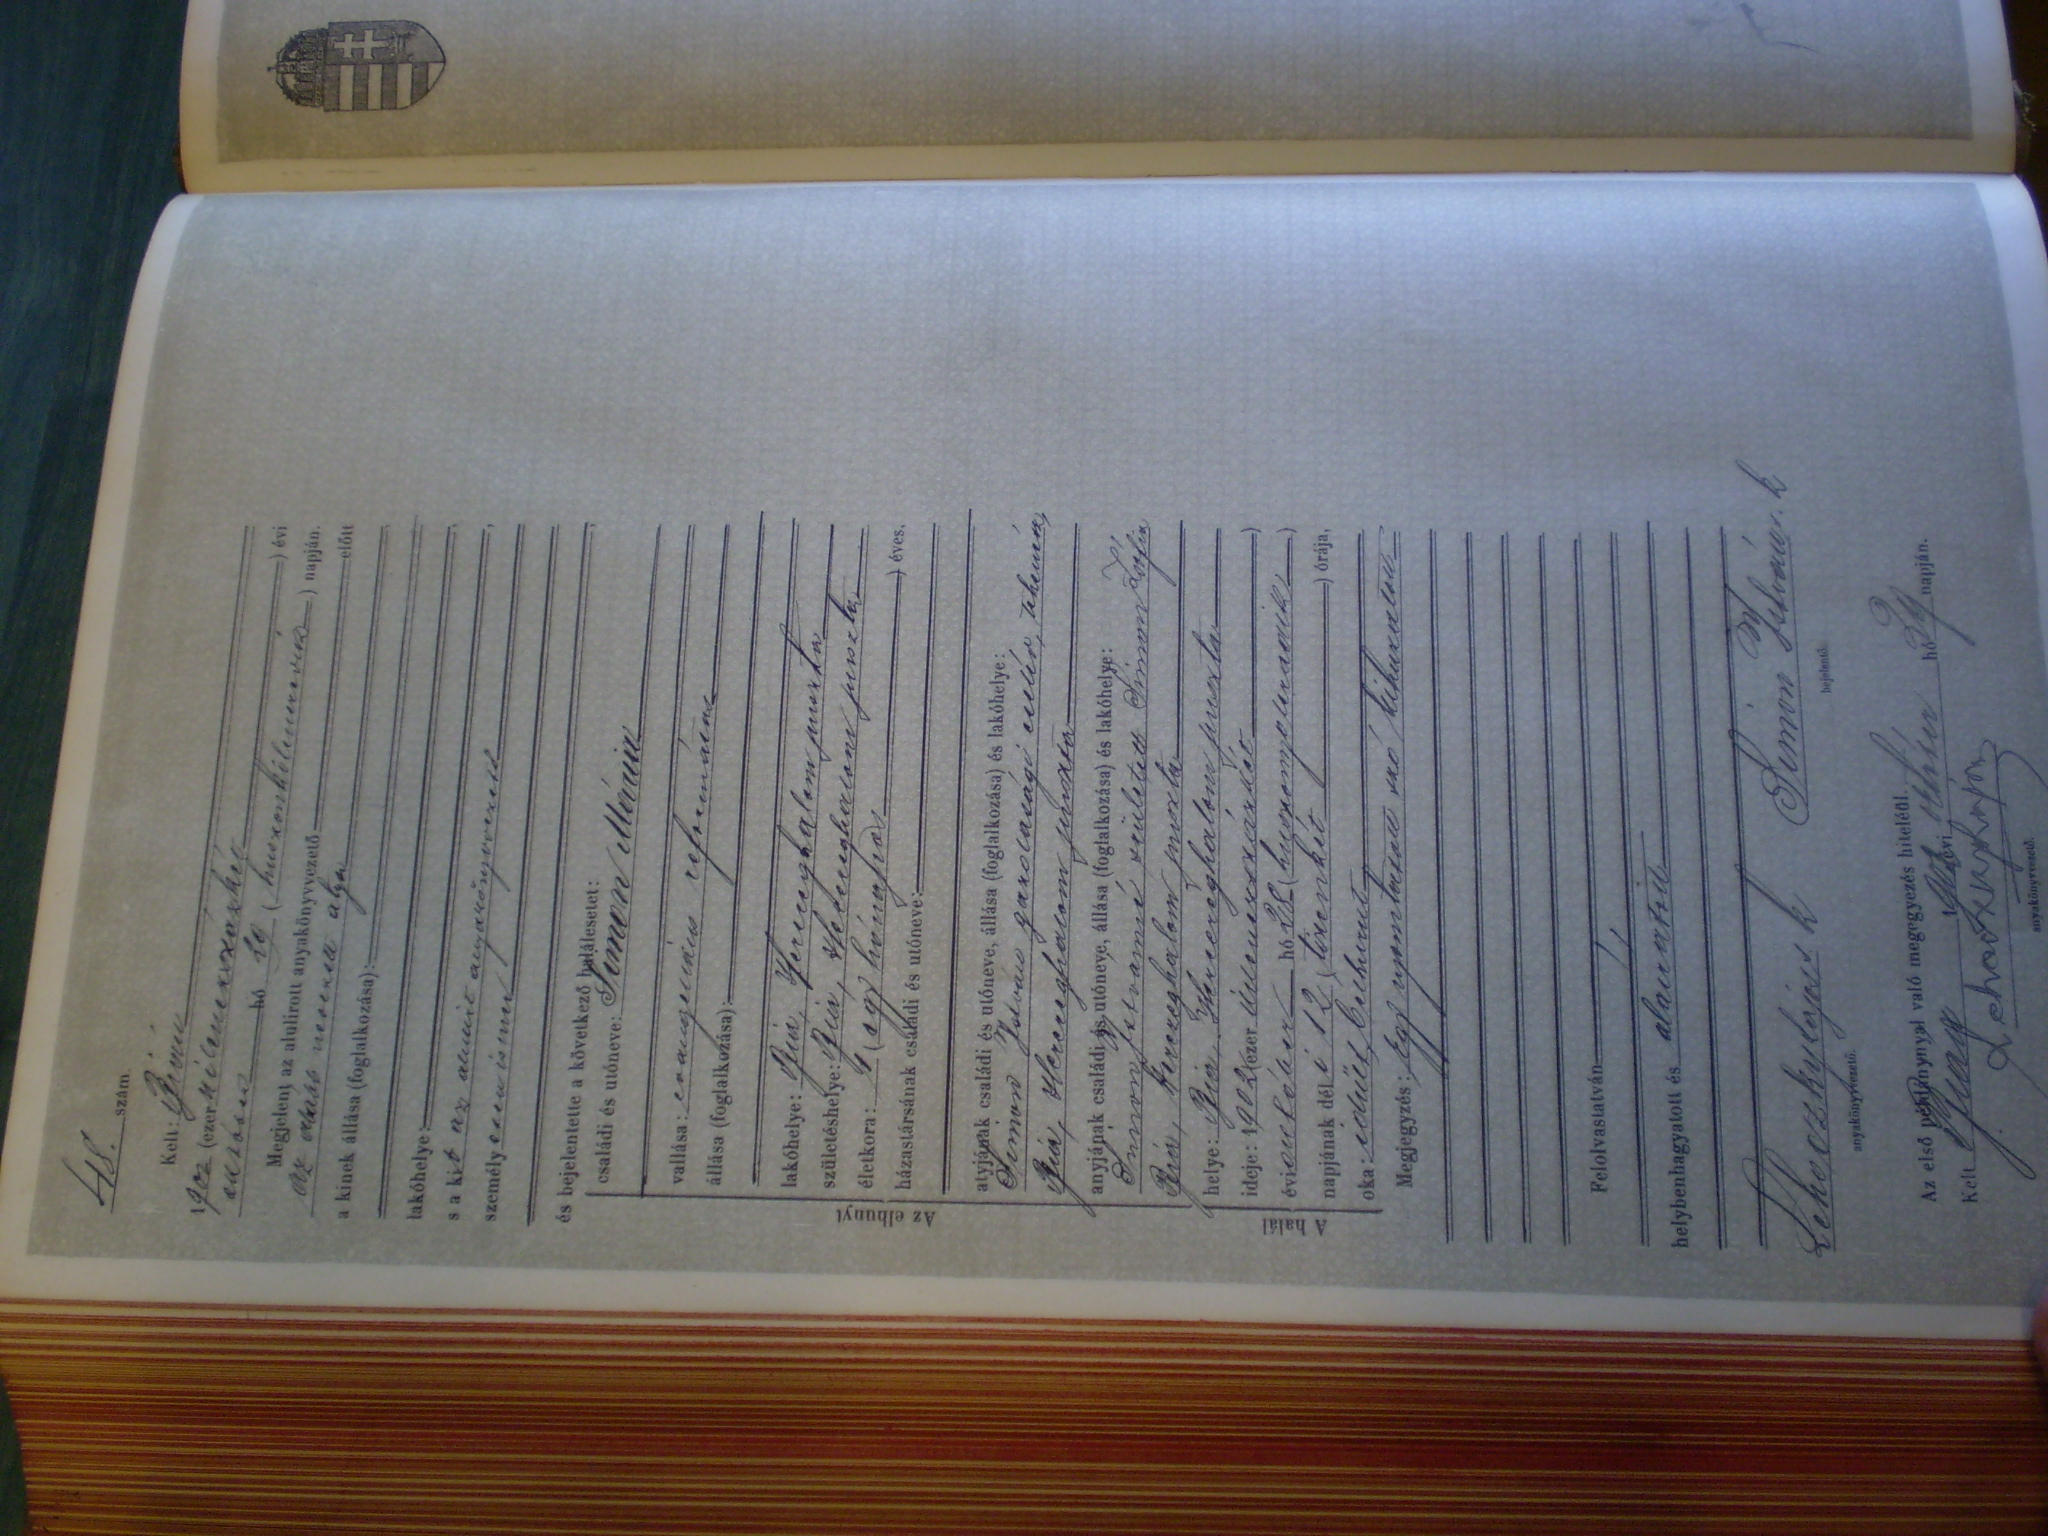 48. szám.
Kelt: Bián
1902 (ezer kilencszázkét
hó 29 (huszonkilencedik) napján.
évi
Megjelent az alulirott anyakönyvvezető előtt
az alább nevezett atya
a kinek állása (foglalkozása):
lakóhelye:
s a kit az alulirt anyakönyvvezető
személyesen ismer
és bejelentette a következő halálesetet:
Az elhunyt
családi és utóneve: Simon Mária
vallása: evangelicus református
állása (foglalkozása):
lakóhelye: Bia, Herceghalom puszta
születéshelye: Bia, Herceghalom puszta
életkora: 1 (egy hónapos) éves.
házastársának családi és utóneve:
atyjának családi és utóneve, állása (foglalkozása) és lakóhelye:
Simon István gazdasági cseléd, tehenes,
Bia, Herceghalom puszta
anyjának családi és utóneve, állása (foglalkozása) és lakóhelye:
Simon Istvánné született Simon Zsófia
Bia, Herceghalom puszta
A halál
helye: Bia Herceghalom puszta
ideje: 1902 (ezer kilencszázkét)
évi hó 28 (huszonnyolcadik)
napjának dél i 12 (tizenkét) órája,
oka: idült bélhurut
Megjegyzés: Egy nyomtatva szó kihúzatott
Felolvastatván
helybenhagyatott és aláiratott
Simon István s. k
bejelentő.
s. k
anyakönyvvezető.
Az első példánynyal való megegyezés hiteléül.
Kelt évi hó napján.
anyakönyvvezető.